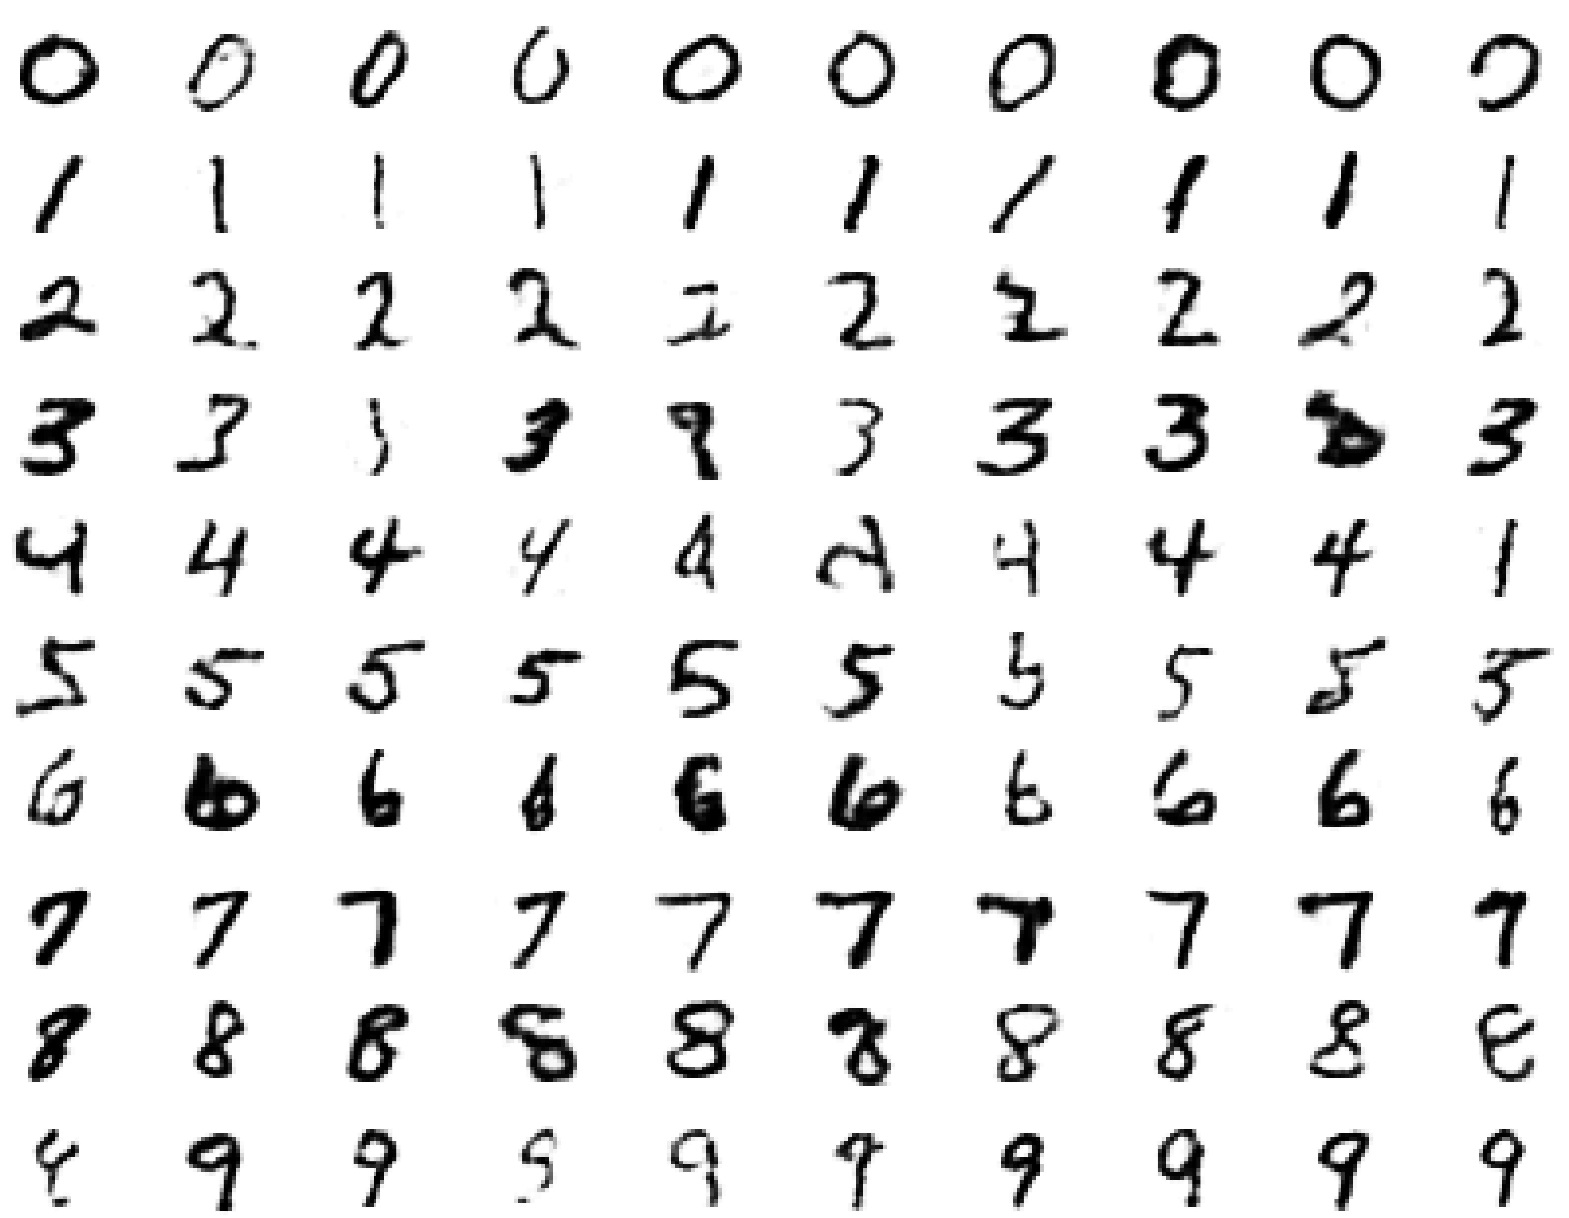 0 0 0 0 0 0 0 0 0 0
1 1 1 1 1 1 1 1 1 1
2 2 2 2 2 2 2 2 2 2
3 3 3 3 3 3 3 3 3
4 4 4 4 4 4 4 4 4 1
5 5 5 5 5 5 5 5 5 5
6 6 6 6 6 6 6 6 6 6
7 7 7 7 7 7 7 7 7 7
8 8 8 8 8 8 8 8 8 8
9 9 9 9 9 9 9 9